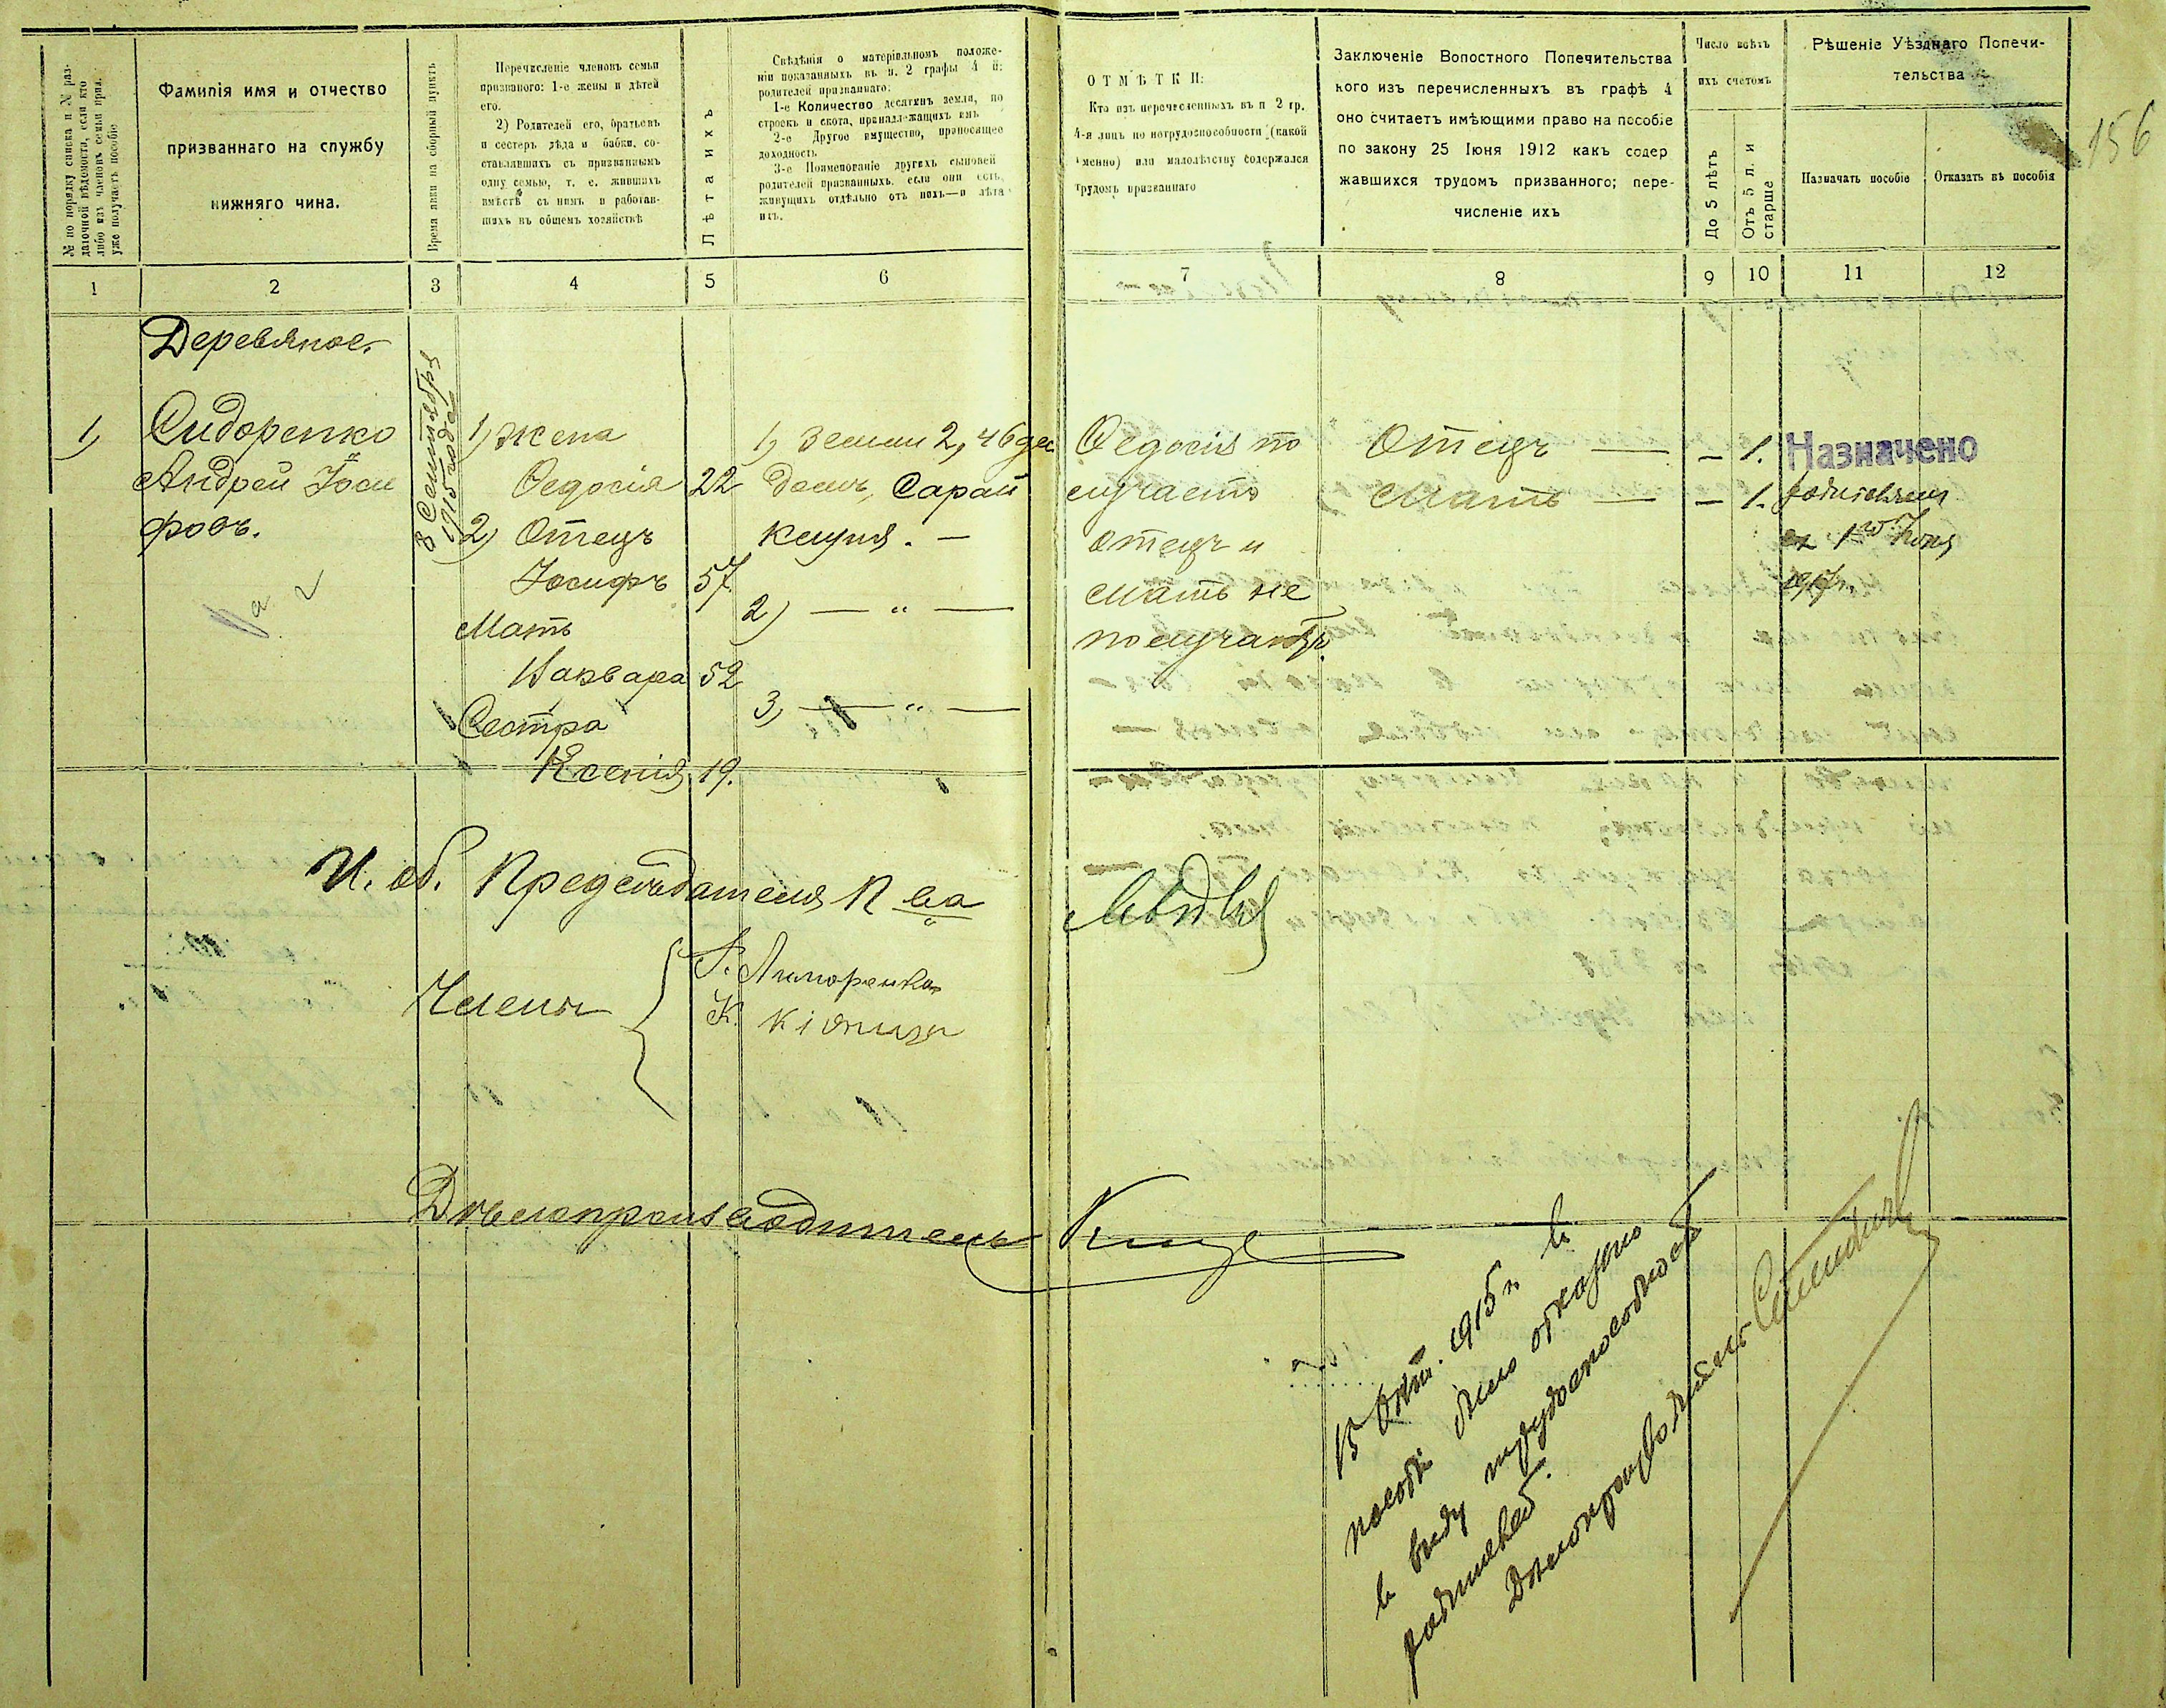 156
№ по порядку списка и № раз-
даточной вѣдомости, если кто
либо изъ членовъ семьи приз.
уже получаетъ пособіе
Фамилія имя и отчество
призваннаго на службу
нижняго чина.
Время явки на сборный пунктъ
Перечисленіе членовъ семьи
призваного: 1-е жены и дѣтей
его.
2) Родителей его, братьевъ
и сестеръ дѣда и бабки, со-
ставлявшихъ съ призваннымъ
одну семью, т. е. жившихъ
вмѣстѣ съ нимъ и работав-
шихъ въ общемъ хозяйствѣ
Лѣта ихъ
Свѣдѣнія о матеріальномъ положе-
ніи показанныхъ въ п. 2 графы 4 й:
родителей призваннаго:
1-е Количество десятинъ земли, по
строекъ и скота, принадлежащихъ имъ
2-е Другое имущество, приносящее
доходность
3-е Поименованіе другихъ сыновей
родителей призванныхъ, если они есть,
живущихъ отдѣльно отъ нихъ—и лѣта
ихъ.
ОТМѢТКИ:
Кто изъ перечисленныхъ въ п 2 гр.
4-я лицъ по нетрудоспособности (какой
именно) или малолѣтству содержался
трудомъ призваннаго
Заключеніе Вопостного Попечительства
кого изъ перечисленныхъ въ графѣ 4
оно считаетъ имѣющими право на пособіе
по закону 25 Іюня 1912 какъ содер
жавшихся трудомъ призванного; пере-
численіе ихъ
Число всѣхъ
ихъ счетомъ
До 5 лѣтъ
Отъ 5 л. и
старше
Рѣшеніе Уѣзднаго Попечи-
тельства
Назначать пособіе
Отказать въ пособія
1 2 3 4 5 6 7 8 9 10 11 12
Деревяное.
1)
Сидоренко
Андрей Іоси
фовъ.
8 Сентября
1915 года
1) Жена
Ѳедосія 22
2) Отецъ
Іосифъ 57
Мать
Варвара 52
Сестра
Ксенія 19.
1) Земли 2,46 дес
домъ, Сарай
клуня. —
2) — „ —
3) — „ —
Ѳедосія по
лучаетъ
отецъ и
мать не
получаютъ.
Отецъ — — 1.
Мать — — 1.
Назначено
родителям
съ 1го Іюня
1917г.
И. об. Предсѣдателя П ва
Члены
К.
Дѣлопроизводитель
15 Окт. 1915 г. в
пособіи было отказано
в виду трудоспособност
родителей.
Дѣлопроизводитель